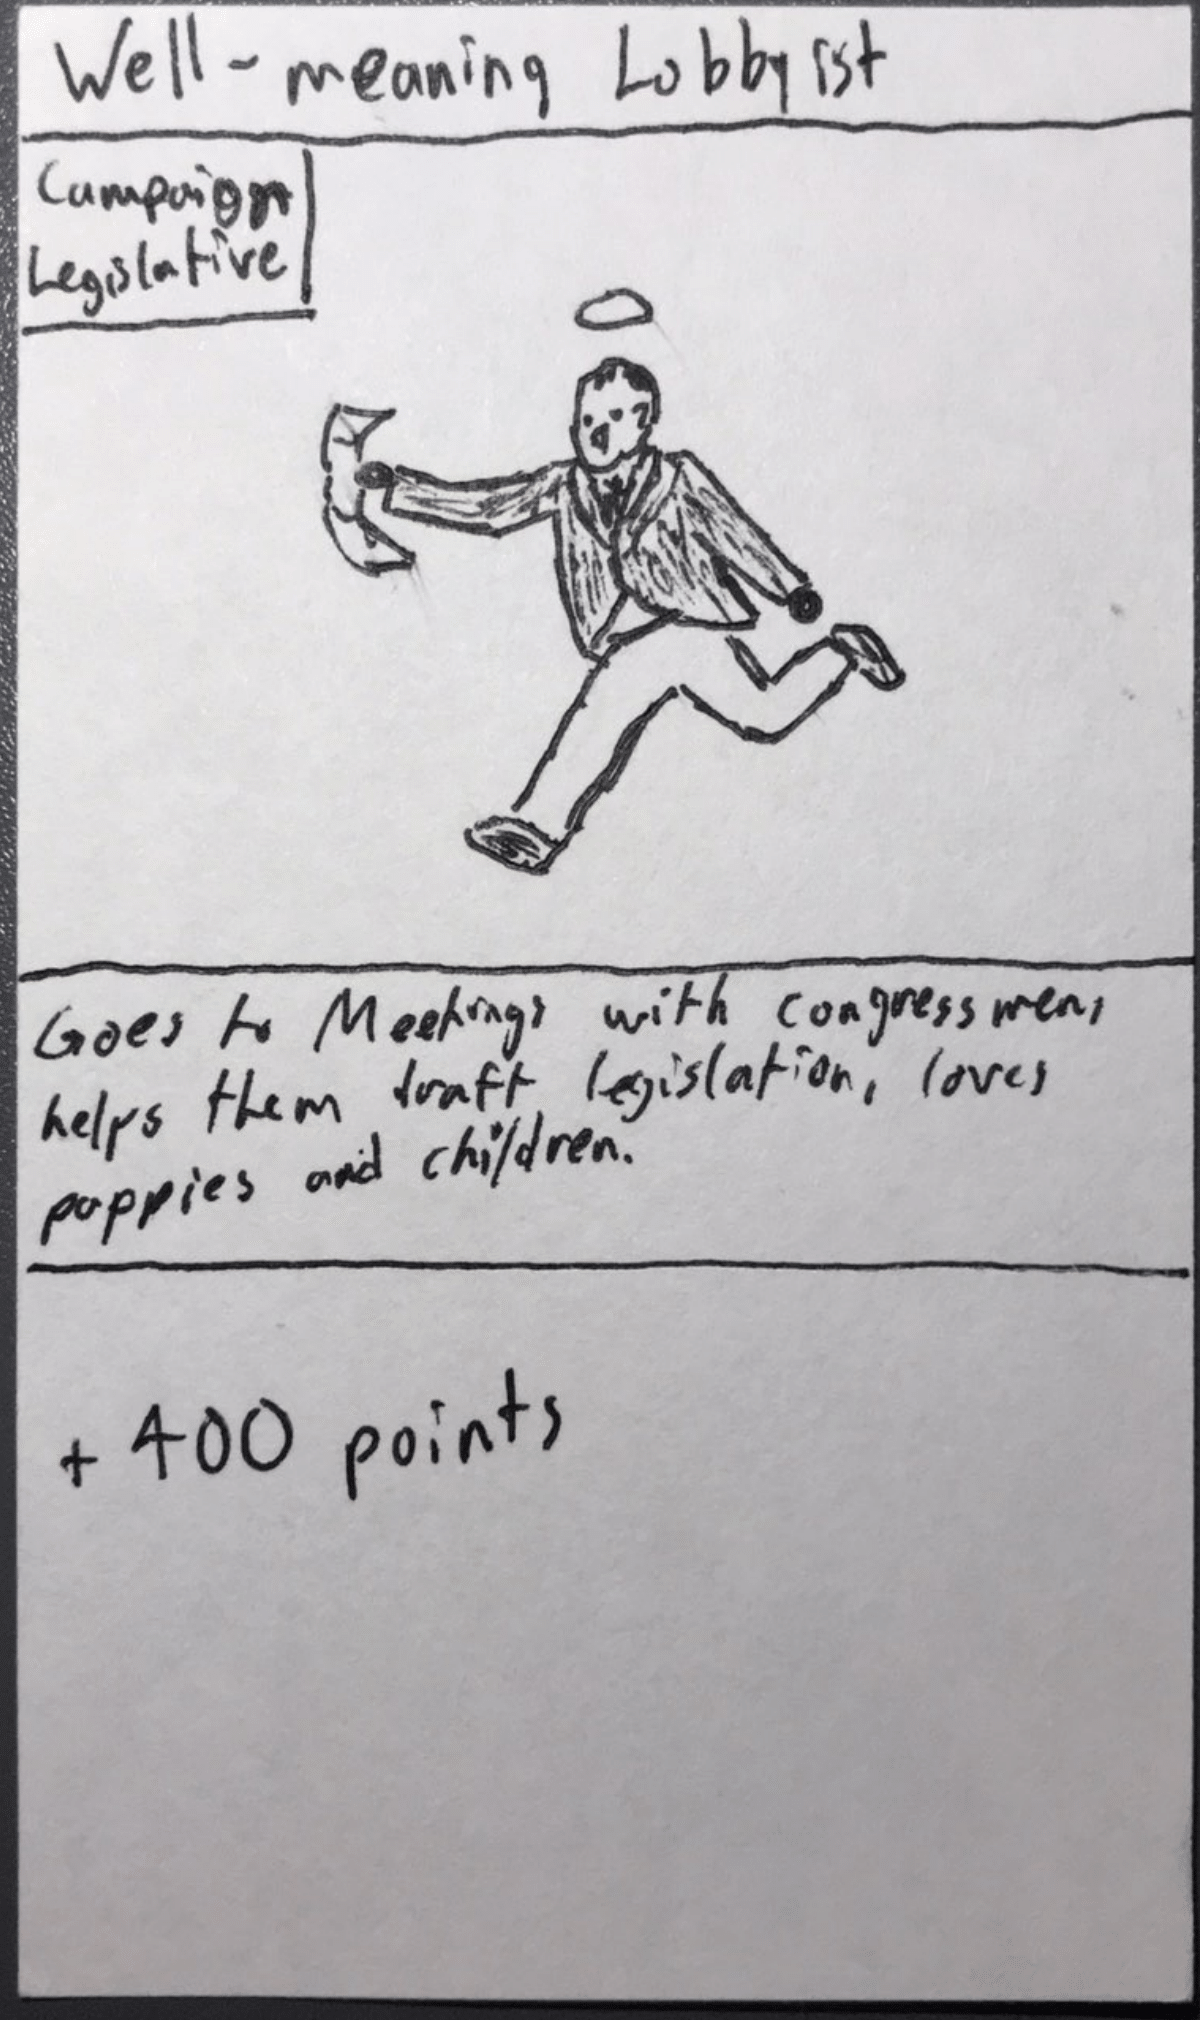 Well-meaning Lobbyist
Campaign
Legislative
Goes to Meetings with congressmen,
helps them draft legislation, loves
puppies and children.
+400 points